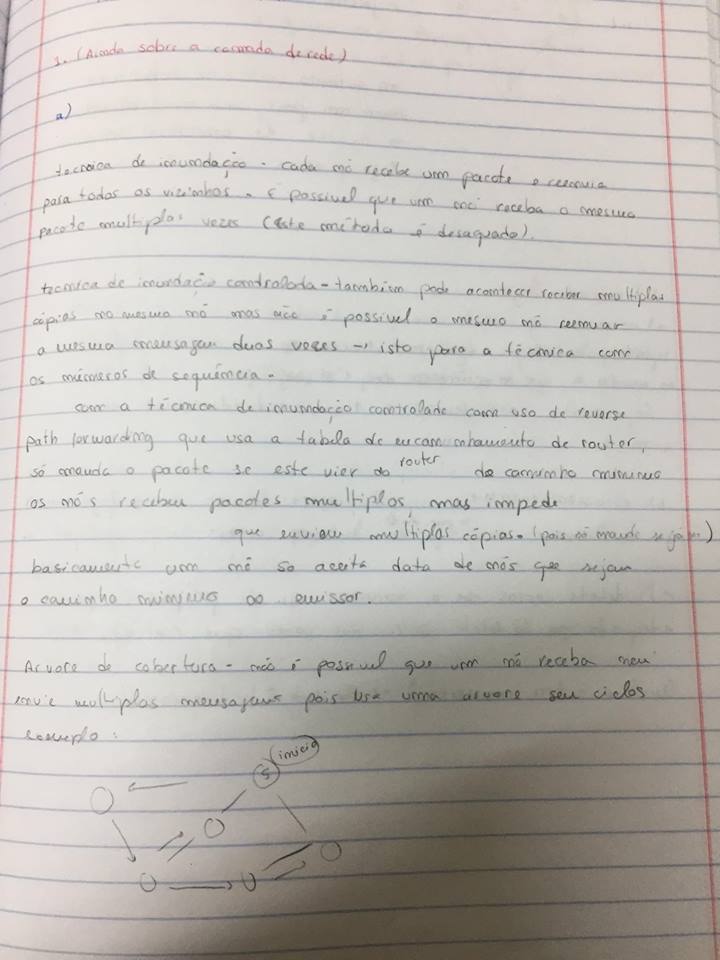 1. (Ainda sobre a camada de rede)
a)
tecnica de inundação - cada nó recebe um pacote e reenvia
para todos os vizinhos. É possivel que um nó receba o mesmo
pacote multiplas vezes (este método é desaquado).
tecnica de inundação controlada - também pode acontecer receber multiplas
cópias no mesmo nó mas não é possivel o mesmo nó reenviar
a mesma mensagem duas vezes → isto para a técnica com
os números de sequência.
com a técnica de inundação controlada com uso de reverse
path forwarding que usa a tabela de encaminhamento de router,
só manda o pacote se este vier do router de caminho minimo
os nós recebem pacotes multiplos, mas impede
que enviam multiplas cópias. (pois só manda se já)
basicamente um nó so aceita data de nós que sejam
o caminho minimo ao emissor.
Arvore de cobertura - não é possivel que um nó receba nem
envie multiplas mensagens pois usa uma arvore sem ciclos
exemplo:
S inicio